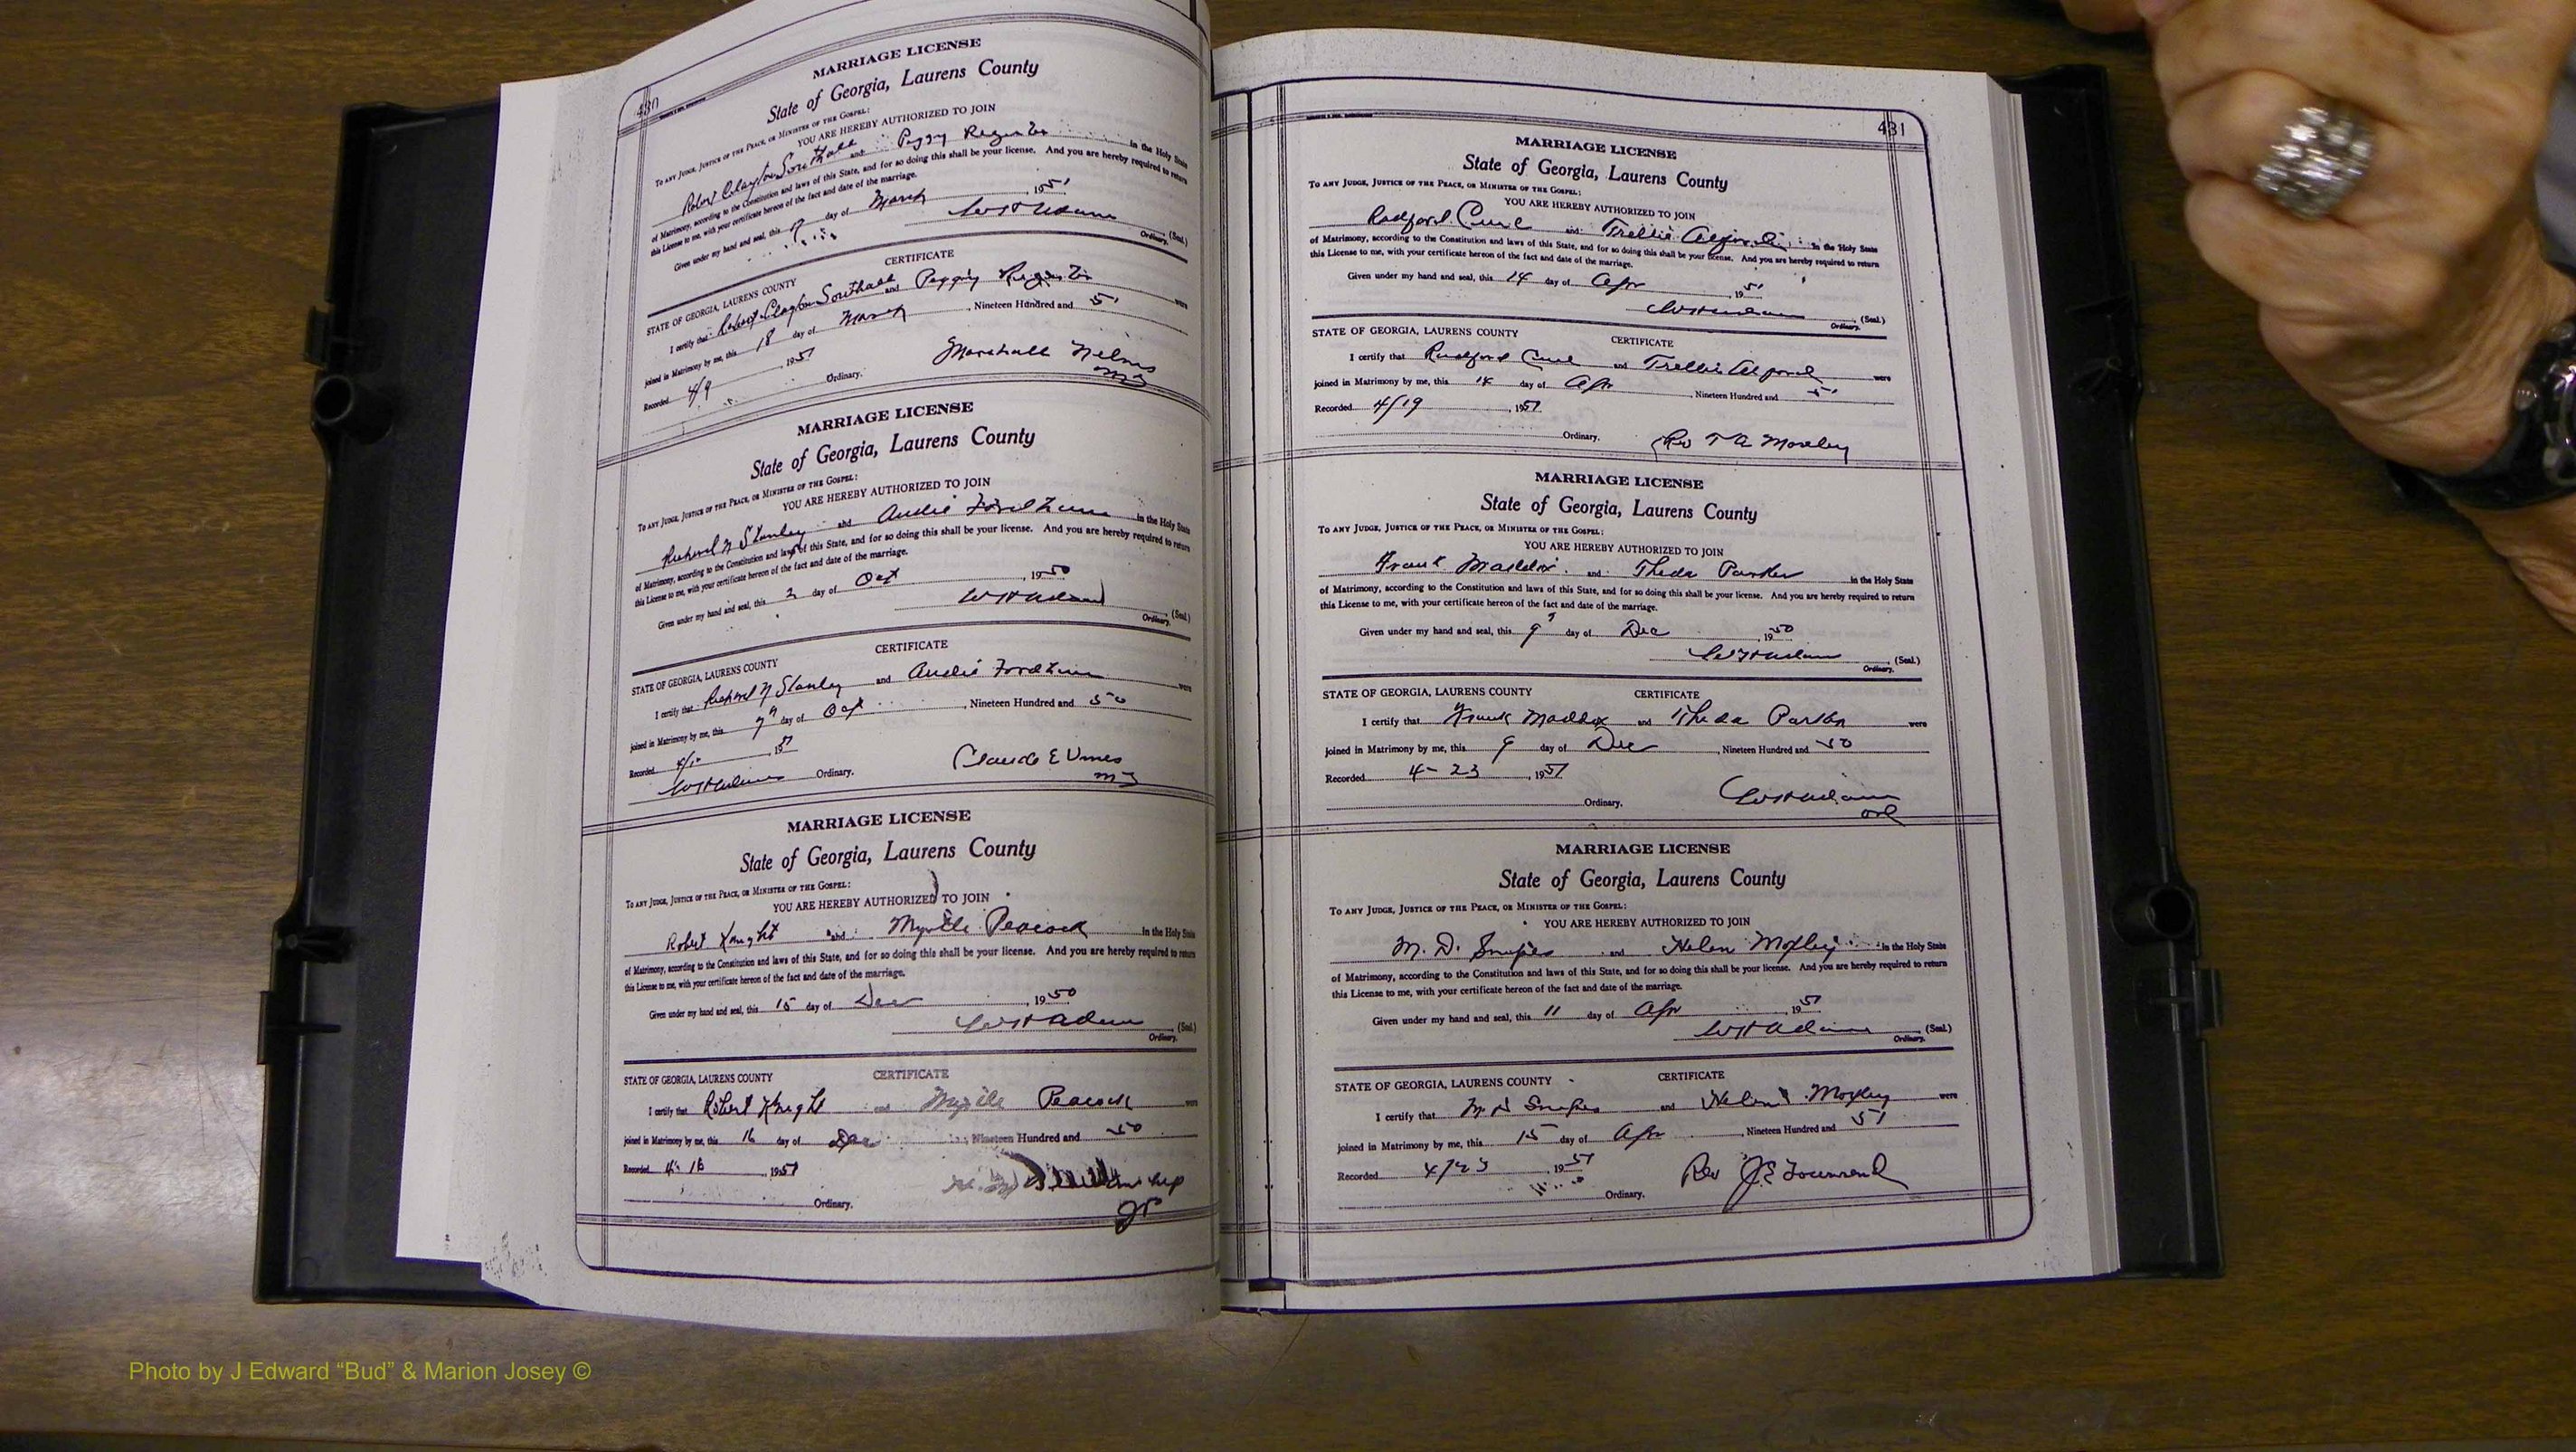 430
MARRIAGE LICENSE
State of Georgia, Laurens County
TO ANY JUDGE, JUSTICE OF THE PEACE, OR MINISTER OF THE GOSPEL:
YOU ARE HEREBY AUTHORIZED TO JOIN
Robert Clayton Southall and Peggy Register in the Holy State
of Matrimony, according to the Constitution and laws of this State, and for so doing this shall be your license. And you are hereby required to return
this License to me, with your certificate hereon of the fact and date of the marriage.
Given under my hand and seal, this day of March, 1951
W H Adams (Seal.)
Ordinary.
CERTIFICATE
STATE OF GEORGIA, LAURENS COUNTY
I certify that Robert Clayton Southall and Peggy Register were
joined in Matrimony by me, this 18 day of March, Nineteen Hundred and 51
Recorded 4/9, 1951
Ordinary.
Marshall Nelms
MG
MARRIAGE LICENSE
State of Georgia, Laurens County
TO ANY JUDGE, JUSTICE OF THE PEACE, OR MINISTER OF THE GOSPEL:
YOU ARE HEREBY AUTHORIZED TO JOIN
Richard N Stanley and Audie Fordham in the Holy State
of Matrimony, according to the Constitution and laws of this State, and for so doing this shall be your license. And you are hereby required to return
this License to me, with your certificate hereon of the fact and date of the marriage.
Given under my hand and seal, this 2 day of Oct, 1950
W H Adams (Seal.)
Ordinary.
CERTIFICATE
STATE OF GEORGIA, LAURENS COUNTY
I certify that Richard N Stanley and Audie Fordham were
joined in Matrimony by me, this 7 day of Oct, Nineteen Hundred and 50
Recorded, 1951
W H Adams Ordinary.
Claude E Vines
MG
MARRIAGE LICENSE
State of Georgia, Laurens County
TO ANY JUDGE, JUSTICE OF THE PEACE, OR MINISTER OF THE GOSPEL:
YOU ARE HEREBY AUTHORIZED TO JOIN
Robert Knight and Myrtle Peacock in the Holy State
of Matrimony, according to the Constitution and laws of this State, and for so doing this shall be your license. And you are hereby required to return
this License to me, with your certificate hereon of the fact and date of the marriage.
Given under my hand and seal, this 15 day of Dec, 1950
W H Adams (Seal.)
Ordinary.
STATE OF GEORGIA, LAURENS COUNTY CERTIFICATE
I certify that Robert Knight and Myrtle Peacock were
joined in Matrimony by me, this 16 day of Dec, Nineteen Hundred and 50
Recorded 4-16, 1951
Ordinary.
JP
431
MARRIAGE LICENSE
State of Georgia, Laurens County
TO ANY JUDGE, JUSTICE OF THE PEACE, OR MINISTER OF THE GOSPEL:
YOU ARE HEREBY AUTHORIZED TO JOIN
Radford Curl and Trellis Alford in the Holy State
of Matrimony, according to the Constitution and laws of this State, and for so doing this shall be your license. And you are hereby required to return
this License to me, with your certificate hereon of the fact and date of the marriage.
Given under my hand and seal, this 14 day of Apr, 1951
W H Adams (Seal.)
Ordinary.
STATE OF GEORGIA, LAURENS COUNTY CERTIFICATE
I certify that Radford Curl and Trellis Alford were
joined in Matrimony by me, this 14 day of Apr, Nineteen Hundred and 51
Recorded 4/19, 1951
Ordinary. Rev T A Moseley
MARRIAGE LICENSE
State of Georgia, Laurens County
TO ANY JUDGE, JUSTICE OF THE PEACE, OR MINISTER OF THE GOSPEL:
YOU ARE HEREBY AUTHORIZED TO JOIN
Frank Maddox and Theda Parker in the Holy State
of Matrimony, according to the Constitution and laws of this State, and for so doing this shall be your license. And you are hereby required to return
this License to me, with your certificate hereon of the fact and date of the marriage.
Given under my hand and seal, this 9 day of Dec, 1950
W H Adams (Seal.)
Ordinary.
STATE OF GEORGIA, LAURENS COUNTY CERTIFICATE
I certify that Frank Maddox and Theda Parker were
joined in Matrimony by me, this 9 day of Dec, Nineteen Hundred and 50
Recorded 4-23, 1951
Ordinary. W H Adams
Ord
MARRIAGE LICENSE
State of Georgia, Laurens County
TO ANY JUDGE, JUSTICE OF THE PEACE, OR MINISTER OF THE GOSPEL:
YOU ARE HEREBY AUTHORIZED TO JOIN
M. D. Snipes and Helen Moxley in the Holy State
of Matrimony, according to the Constitution and laws of this State, and for so doing this shall be your license. And you are hereby required to return
this License to me, with your certificate hereon of the fact and date of the marriage.
Given under my hand and seal, this 11 day of Apr, 1951
W H Adams (Seal.)
Ordinary.
STATE OF GEORGIA, LAURENS COUNTY CERTIFICATE
I certify that M. D Snipes and Helen Moxley were
joined in Matrimony by me, this 15 day of Apr, Nineteen Hundred and 51
Recorded 4/23, 1951
Ordinary. Rev J E Townsend
Photo by J Edward “Bud” & Marion Josey ©